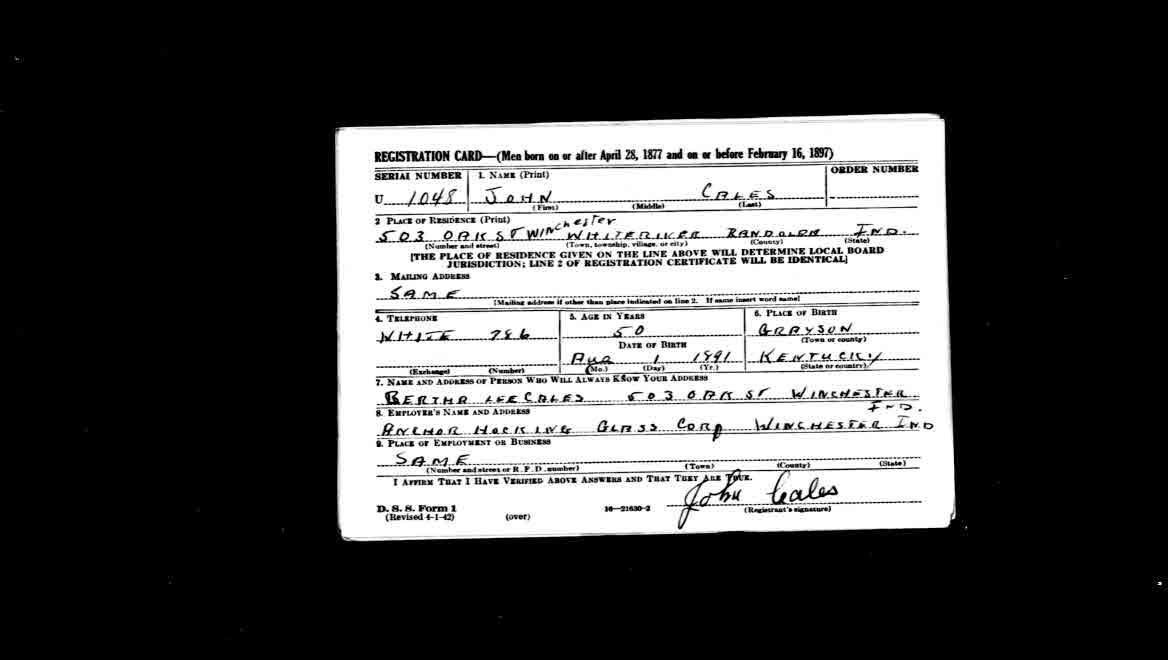 REGISTRATION CARD—(Men born on or after April 28, 1877 and on or before February 16, 1897)
SERIAL NUMBER 1. NAME (Print) ORDER NUMBER
U 1048 JOHN CALES
(First) (Middle) (Last)
2 PLACE OF RESIDENCE (Print)
503 OAK ST WINchester WHITERIVER RANDOLPH IND.
(Number and street) (Town, township, village, or city) (County) (State)
[THE PLACE OF RESIDENCE GIVEN ON THE LINE ABOVE WILL DETERMINE LOCAL BOARD
JURISDICTION; LINE 2 OF REGISTRATION CERTIFICATE WILL BE IDENTICAL]
3. MAILING ADDRESS
SAME
[Mailing address if other than place indicated on line 2. If same insert word same]
4. TELEPHONE 5. AGE IN YEARS 6. PLACE OF BIRTH
WHITE 786 50 GRAYSON
DATE OF BIRTH (Town or county)
AUG 1 1891 KENTUCKY
(Exchange) (Number) (Mo.) (Day) (Yr.) (State or country)
7. NAME AND ADDRESS OF PERSON WHO WILL ALWAYS KNOW YOUR ADDRESS
BERTHA LEE CALES 503 OAK ST WINCHESTER
IND.
8. EMPLOYER'S NAME AND ADDRESS
ANCHOR HOCKING GLASS CORP WINCHESTER IND
9. PLACE OF EMPLOYMENT OR BUSINESS
SAME
(Number and street or R. F. D. number) (Town) (County) (State)
I AFFIRM THAT I HAVE VERIFIED ABOVE ANSWERS AND THAT THEY ARE TRUE.
John Cales
D. S. S. Form 1 16—21630-2 (Registrant's signature)
(Revised 4-1-42) (over)